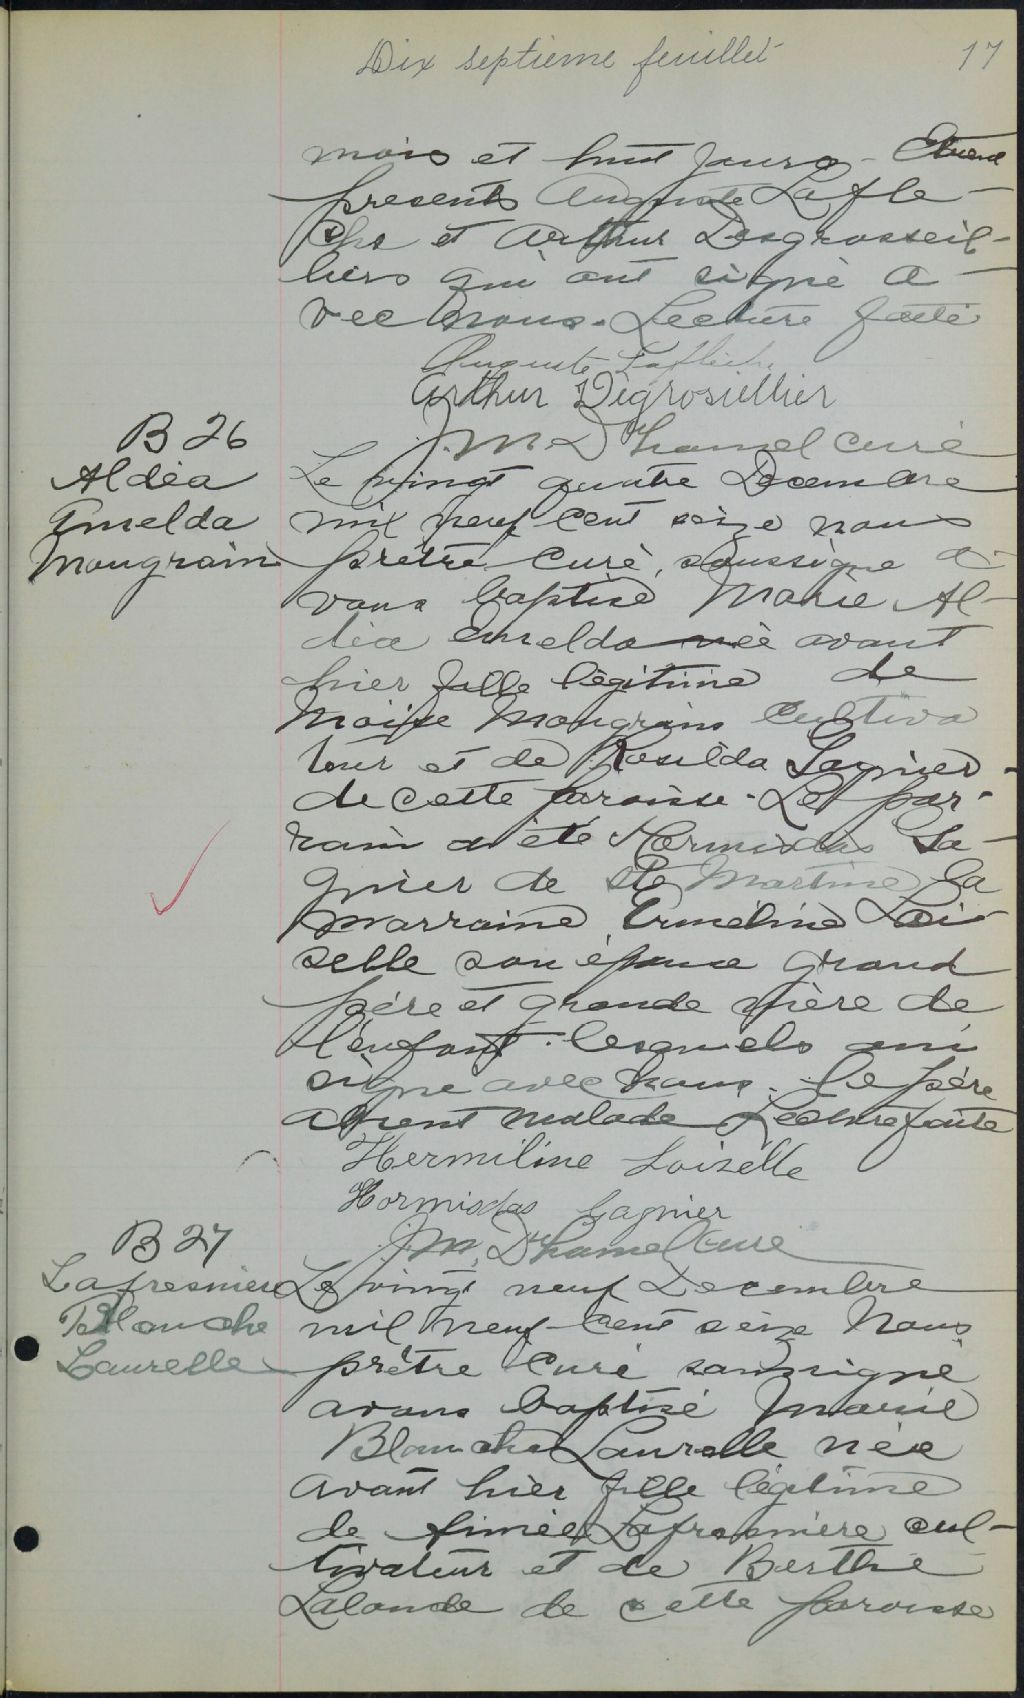 Dix septième feuillet 17
mois et huit jours - Etaient
présents Auguste Lafle-
che et Arthur Desgrosseil-
liers qui ont signé a-
vec nous. Lecture faite
Auguste Laflech
Arthur Dégrosiellier
J. M. Duhamel curé
B 26
Aldéa
Emelda
Mongrain
Le vingt quatre Decembre
mil neuf cent seize nous
prêtre curé, soussigné a-
vons baptisé Marie Al-
déa Emelda née avant
hier fille légitime de
Moïse Mongrain cultiva
teur et de Rosilda Gagnier
de cette paroisse. Le par-
rain a été Hormisdas Ga-
gnier de Ste Martine la
marraine Ermeline Loi-
selle son épouse grand
père et grande mère de
l'enfant. lesquels ont
signé avec nous. le père
absent malade Lecture faite
Hermiline Loiselle
Hormisdas Gagnier
J. M. Duhamel Curé
B 27
Lafresniere
Blanche
Laurelle
Le vingt neuf Decembre
mil neuf cent seize Nous
prêtre curé soussigné
avons baptisé Marie
Blanche Laurelle née
avant hier fille légitime
de Aimée Lafresnière cul-
tivateur et de Berthe
Lalonde de cette paroisse